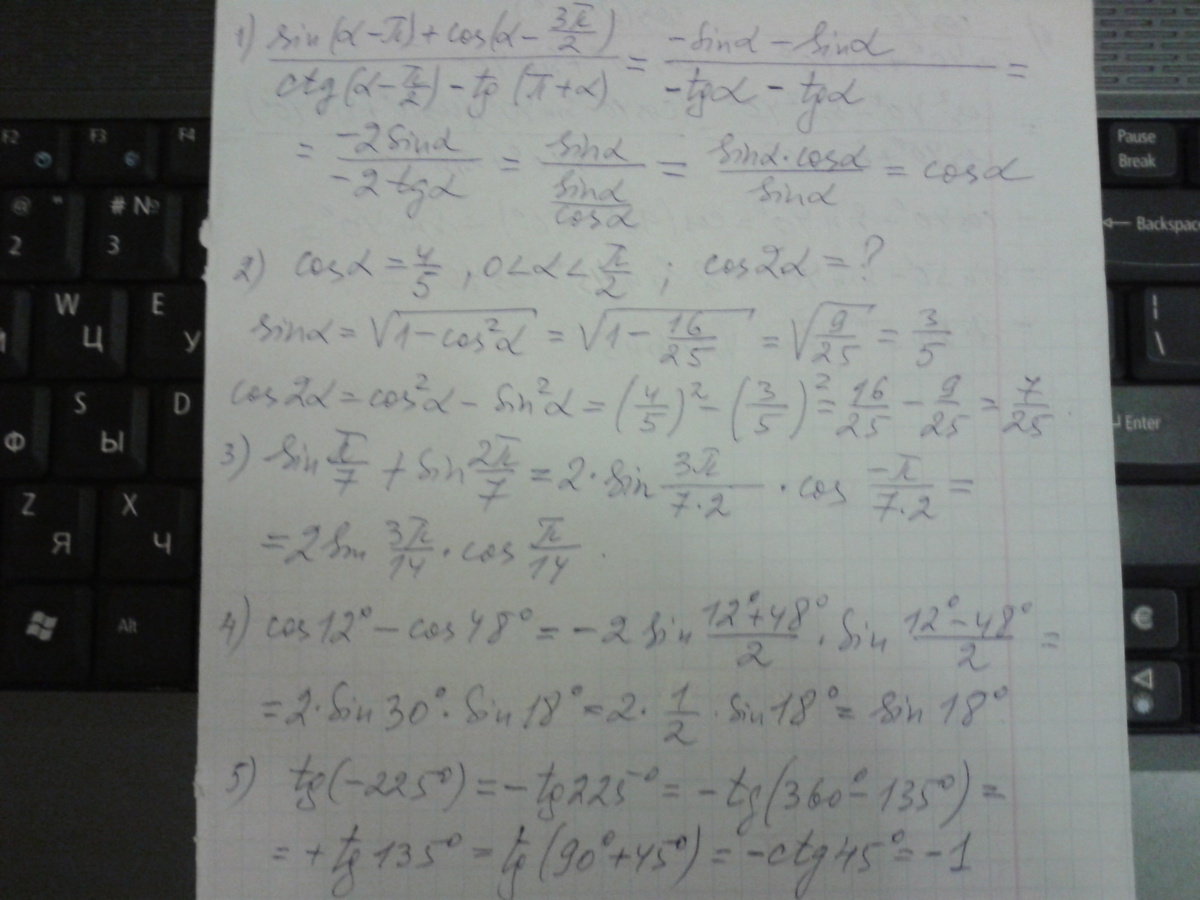 1) (sin(α-π)+cos(α-3π/2))/(ctg(α-π/2)-tg(π+α)) = (-sinα-sinα)/(-tgα-tgα) =
= (-2sinα)/(-2tgα) = sinα/(sinα/cosα) = (sinα·cosα)/sinα = cosα
2) cosα = 4/5, 0<α<π/2; cos2α = ?
sinα = √(1-cos²α) = √(1-16/25) = √(9/25) = 3/5
cos2α = cos²α - sin²α = (4/5)² - (3/5)² = 16/25 - 9/25 = 7/25.
3) sin π/7 + sin 2π/7 = 2·sin 3π/(7·2) · cos -π/(7·2) =
= 2 sin 3π/14 · cos π/14.
4) cos12° - cos48° = -2 sin (12°+48°)/2 · sin (12°-48°)/2 =
= 2·sin30°·sin18° = 2·1/2·sin18° = sin18°
5) tg(-225°) = -tg225° = -tg(360°-135°) =
= +tg135° = tg(90°+45°) = -ctg45° = -1
F2 F3 F4
@ " 2
# № 3
W Ц
E У
S Ы
D
Ф
Z Я
X Ч
Alt
Pause Break
← Backspace
| \
Enter
€